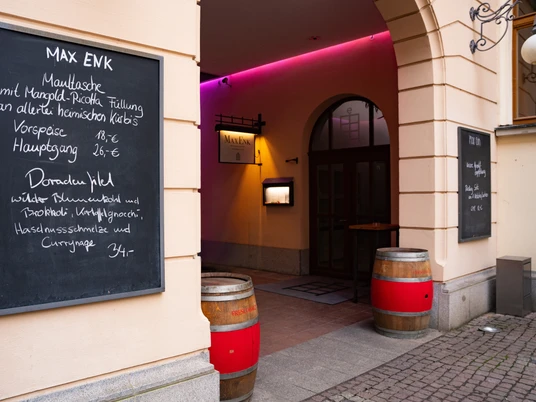 MAX ENK
Maultasche
mit Mangold-Ricotta Füllung
an allerlei heimischen Kürbis
Vorspeise 18,-€
Hauptgang 26,-€
Doradenfilet
wilder Blumenkohl und
Brokkoli, Kartoffelgnocchi,
Haselnussschmelze und
Currynage 34,-
MAX ENK
MAX ENK